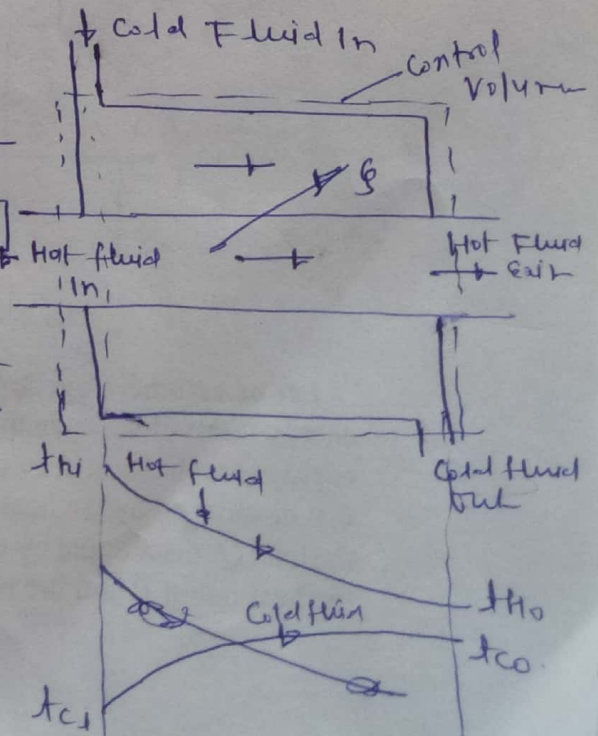 Cold Fluid In
Control
Volume
Q
Hot fluid
In
Hot Fluid
Exit
thi
Hot fluid
Cold fluid
Out
Cold fluid
tHo
tco
tci